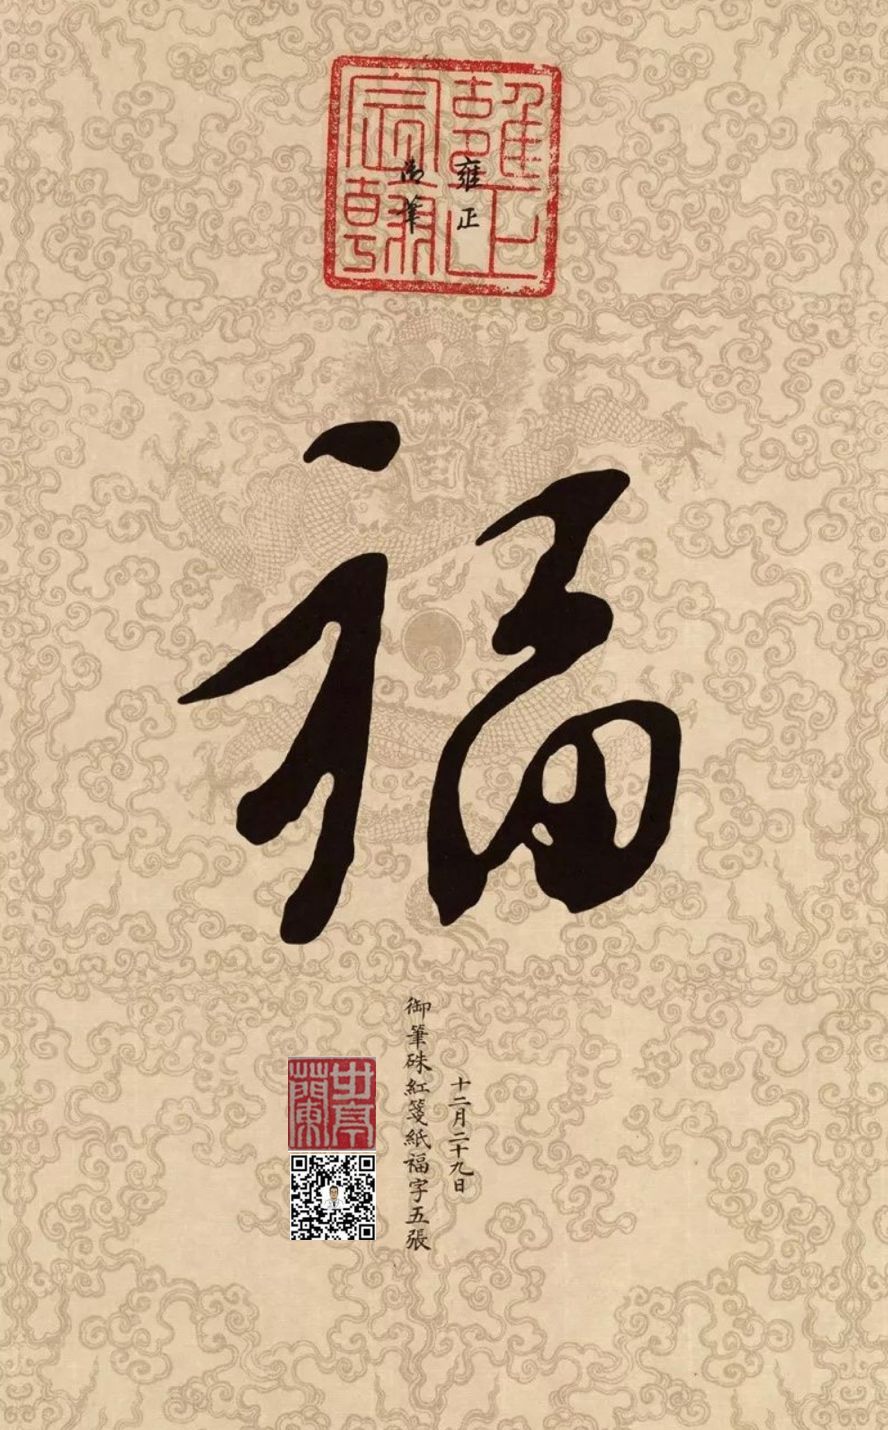 雍正
宸翰
雍正
御筆
福
十二月二十九日
御筆硃紅箋紙福字五張